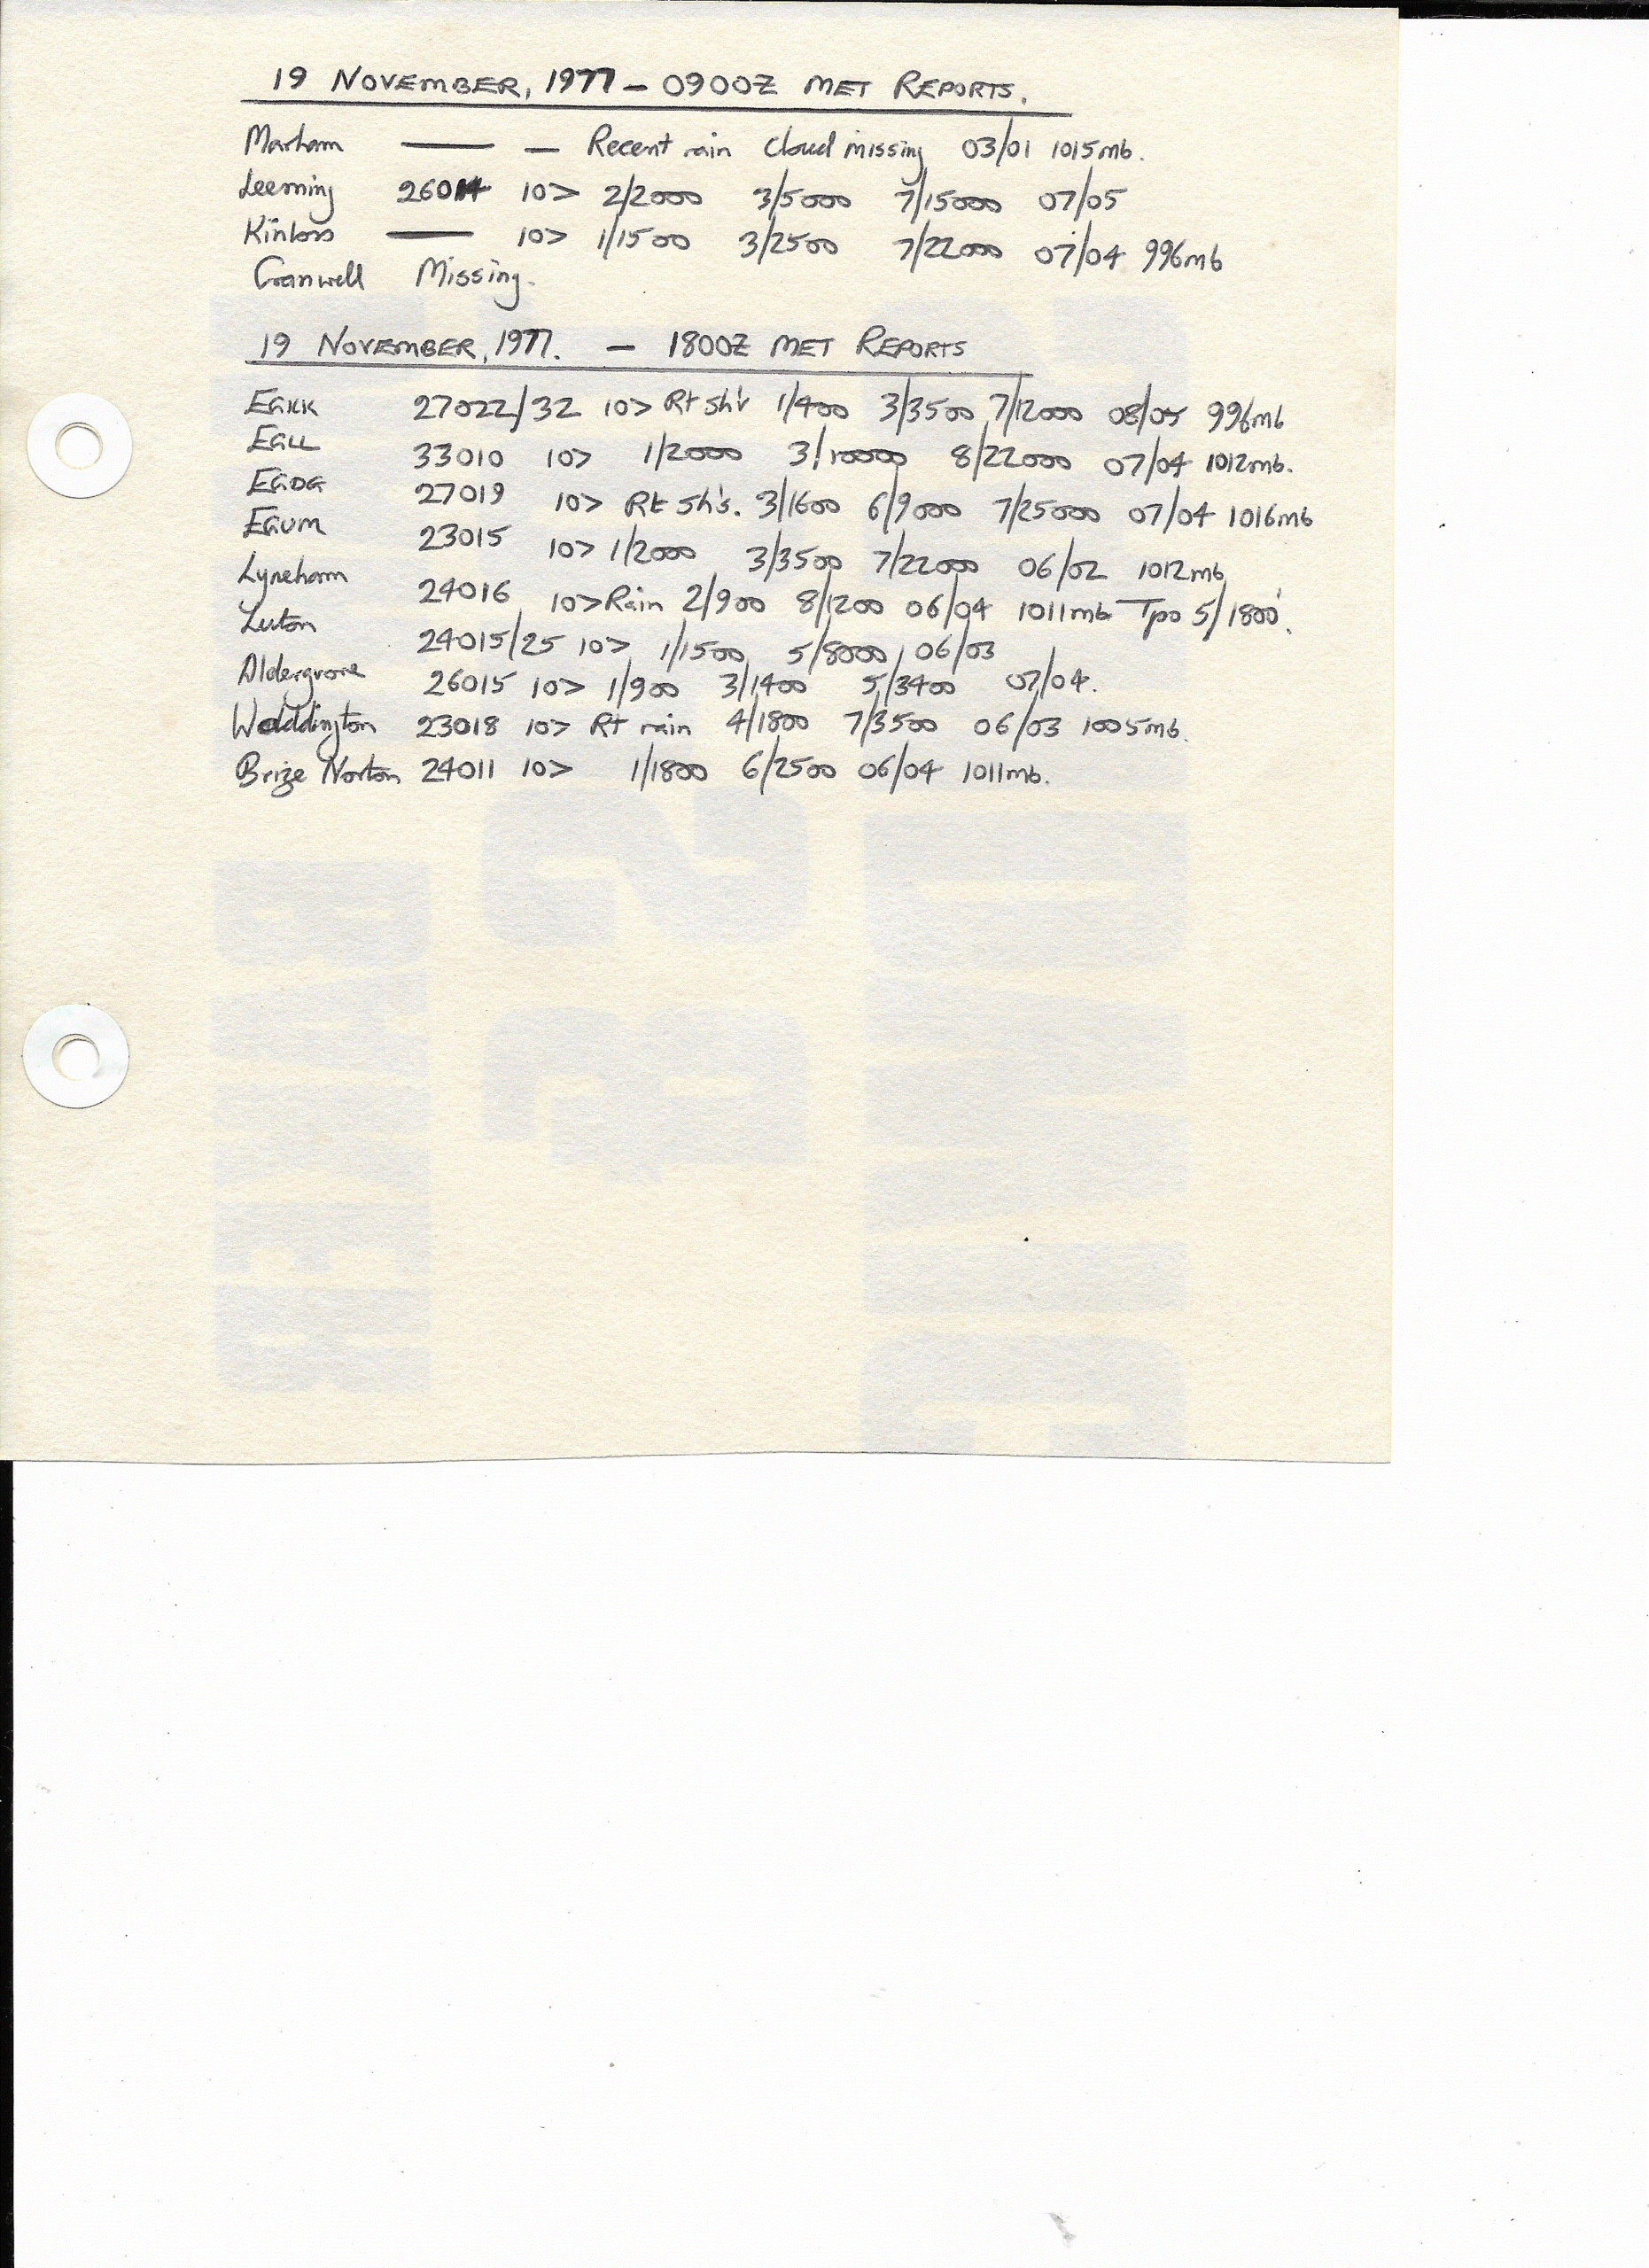 19 NOVEMBER, 1977 - 0900Z MET REPORTS.
Marham — — Recent rain Cloud missing 03/01 1015mb.
Leeming 26014 10> 2/2000 3/5000 7/15000 07/05
Kinloss — 10> 1/1500 3/2500 7/22000 07/04 996mb
Cranwell Missing.
19 NOVEMBER, 1977. - 1800Z MET REPORTS
EGKK 27022/32 10> Rt sh's 1/400 3/3500 7/12000 08/05 996mb
EGLL 33010 10> 1/2000 3/10000 8/22000 07/04 1012mb.
EGDG 27019 10> Rt sh's. 3/1600 6/9000 7/25000 07/04 1016mb
EGUM 23015 10> 1/2000 3/3500 7/22000 06/02 1012mb
Lyneham 24016 10> Rain 2/900 8/1200 06/04 1011mb Tpo 5/1800'.
Luton 24015/25 10> 1/1500 5/8000 06/03
Aldergrove 26015 10> 1/900 3/1400 5/3400 07/04.
Waddington 23018 10> Rt rain 4/1800 7/3500 06/03 1005mb.
Brize Norton 24011 10> 1/1800 6/2500 06/04 1011mb.